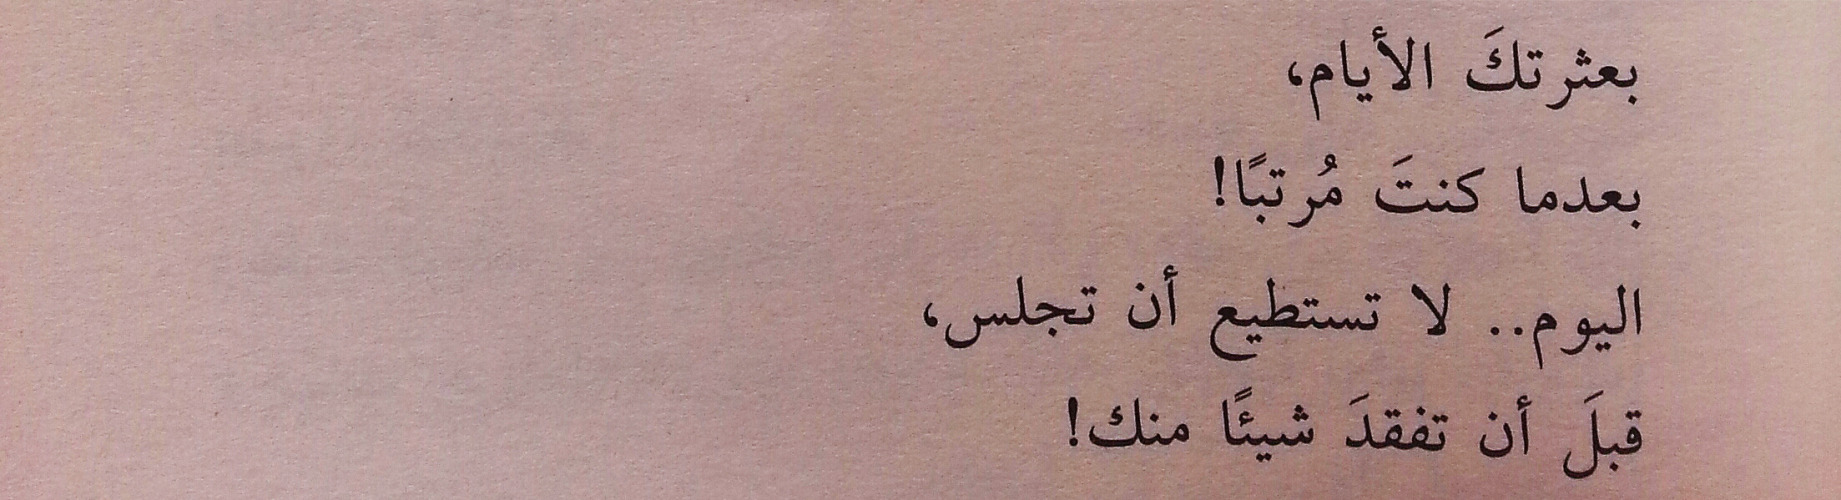 بعثرتكَ الأيام،
بعدما كنتَ مُرتبًا!
اليوم.. لا تستطيع أن تجلس،
قبلَ أن تفقدَ شيئًا منك!